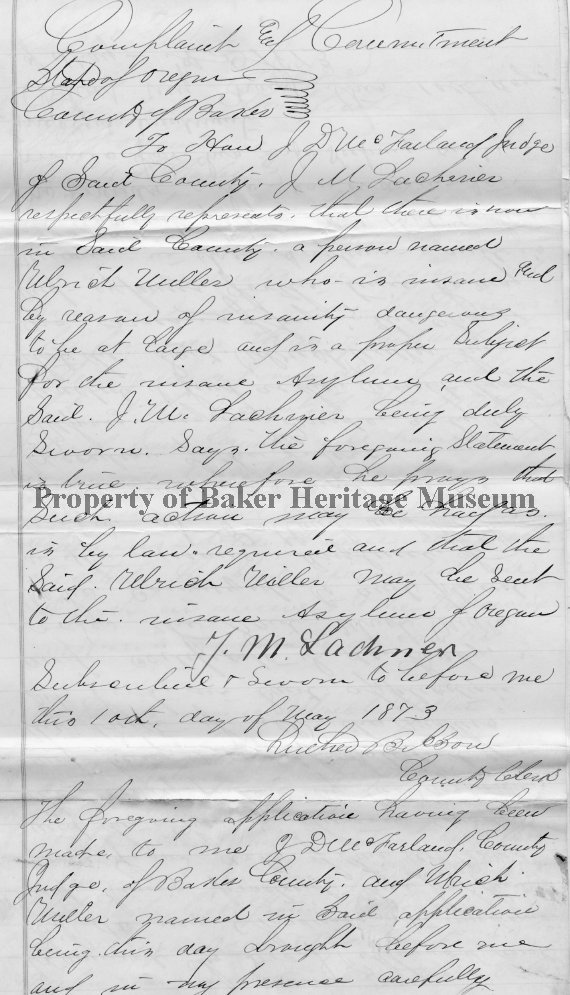 Complaint of Commitment
State of Oregon
County of Baker
To Hon J D McFarland Judge
of Said County. J M Lachner
respectfully represents. that there is now
in Said County. a person named
Ulrich Miller who is insane and
by reason of insanity dangerous
to be at large and is a proper Subject
for the insane Asylum and the
Said. J. M. Lachner being duly
Sworn. Says. the foregoing Statement
is true. wherefore he prays that
Property of Baker Heritage Museum
Such action may be had as.
is by law. required and that the
Said. Ulrich Miller may be sent
to the. insane Asylum of Oregon
J. M. Lachner
Subscribed & Sworn to before me
this 10th. day of May 1873
County Clerk
The foregoing application having been
made, to me J D McFarland, County
Judge, of Baker County. and Ulrich
Miller named in Said application
being. this day brought before me
and in my presence carefully